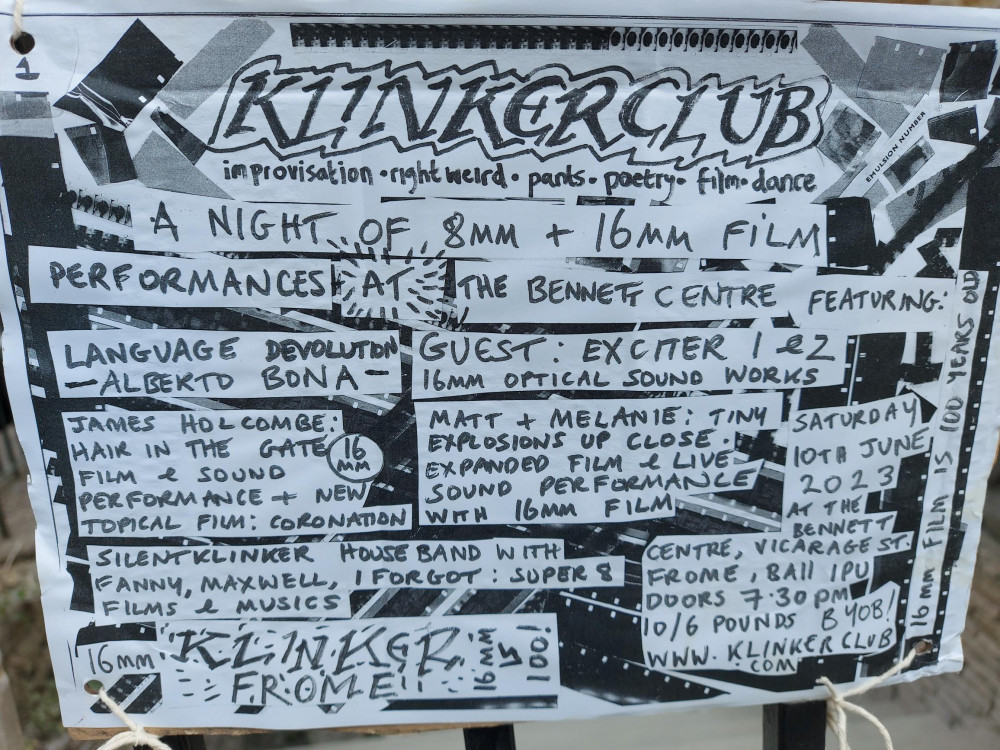 1
KLINKER CLUB
EMULSION NUMBER
improvisation · right weird · pants · poetry · film · dance
A NIGHT OF 8MM + 16MM FILM
PERFORMANCES AT THE BENNETT CENTRE FEATURING:
LANGUAGE DEVOLUTION
- ALBERTO BONA -
GUEST: EXCITER 1 & 2
16MM OPTICAL SOUND WORKS
JAMES HOLCOMBE:
HAIR IN THE GATE 16 MM
FILM & SOUND
PERFORMANCE + NEW
TOPICAL FILM: CORONATION
MATT + MELANIE: TINY
EXPLOSIONS UP CLOSE.
EXPANDED FILM & LIVE
SOUND PERFORMANCE
WITH 16MM FILM
SILENT KLINKER HOUSE BAND WITH
FANNY, MAXWELL, I FORGOT: SUPER 8
FILMS & MUSICS
SATURDAY
10TH JUNE
2023
AT THE
BENNETT
CENTRE, VICARAGE ST.
FROME, BA11 1PU
DOORS 7·30PM
10/6 POUNDS BYOB!
WWW. KLINKER CLUB
.COM
16MM FILM IS 100 YEARS OLD
16mm KLINKER
FROME
16MM
IS
100!